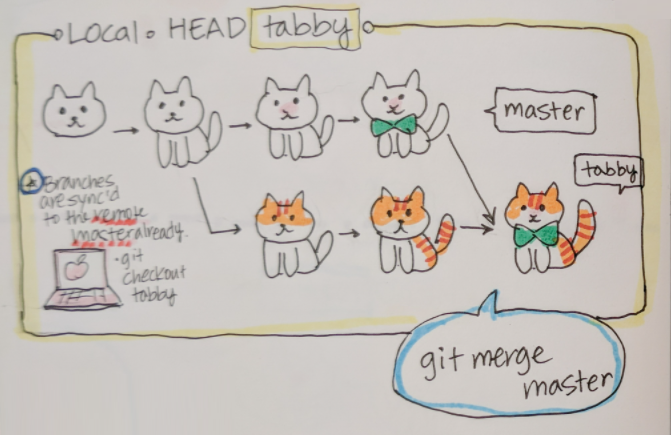 Local. HEAD tabby
master
tabby
Branches
are sync'd
to the remote
master already.
- git
checkout
tabby
git merge
master